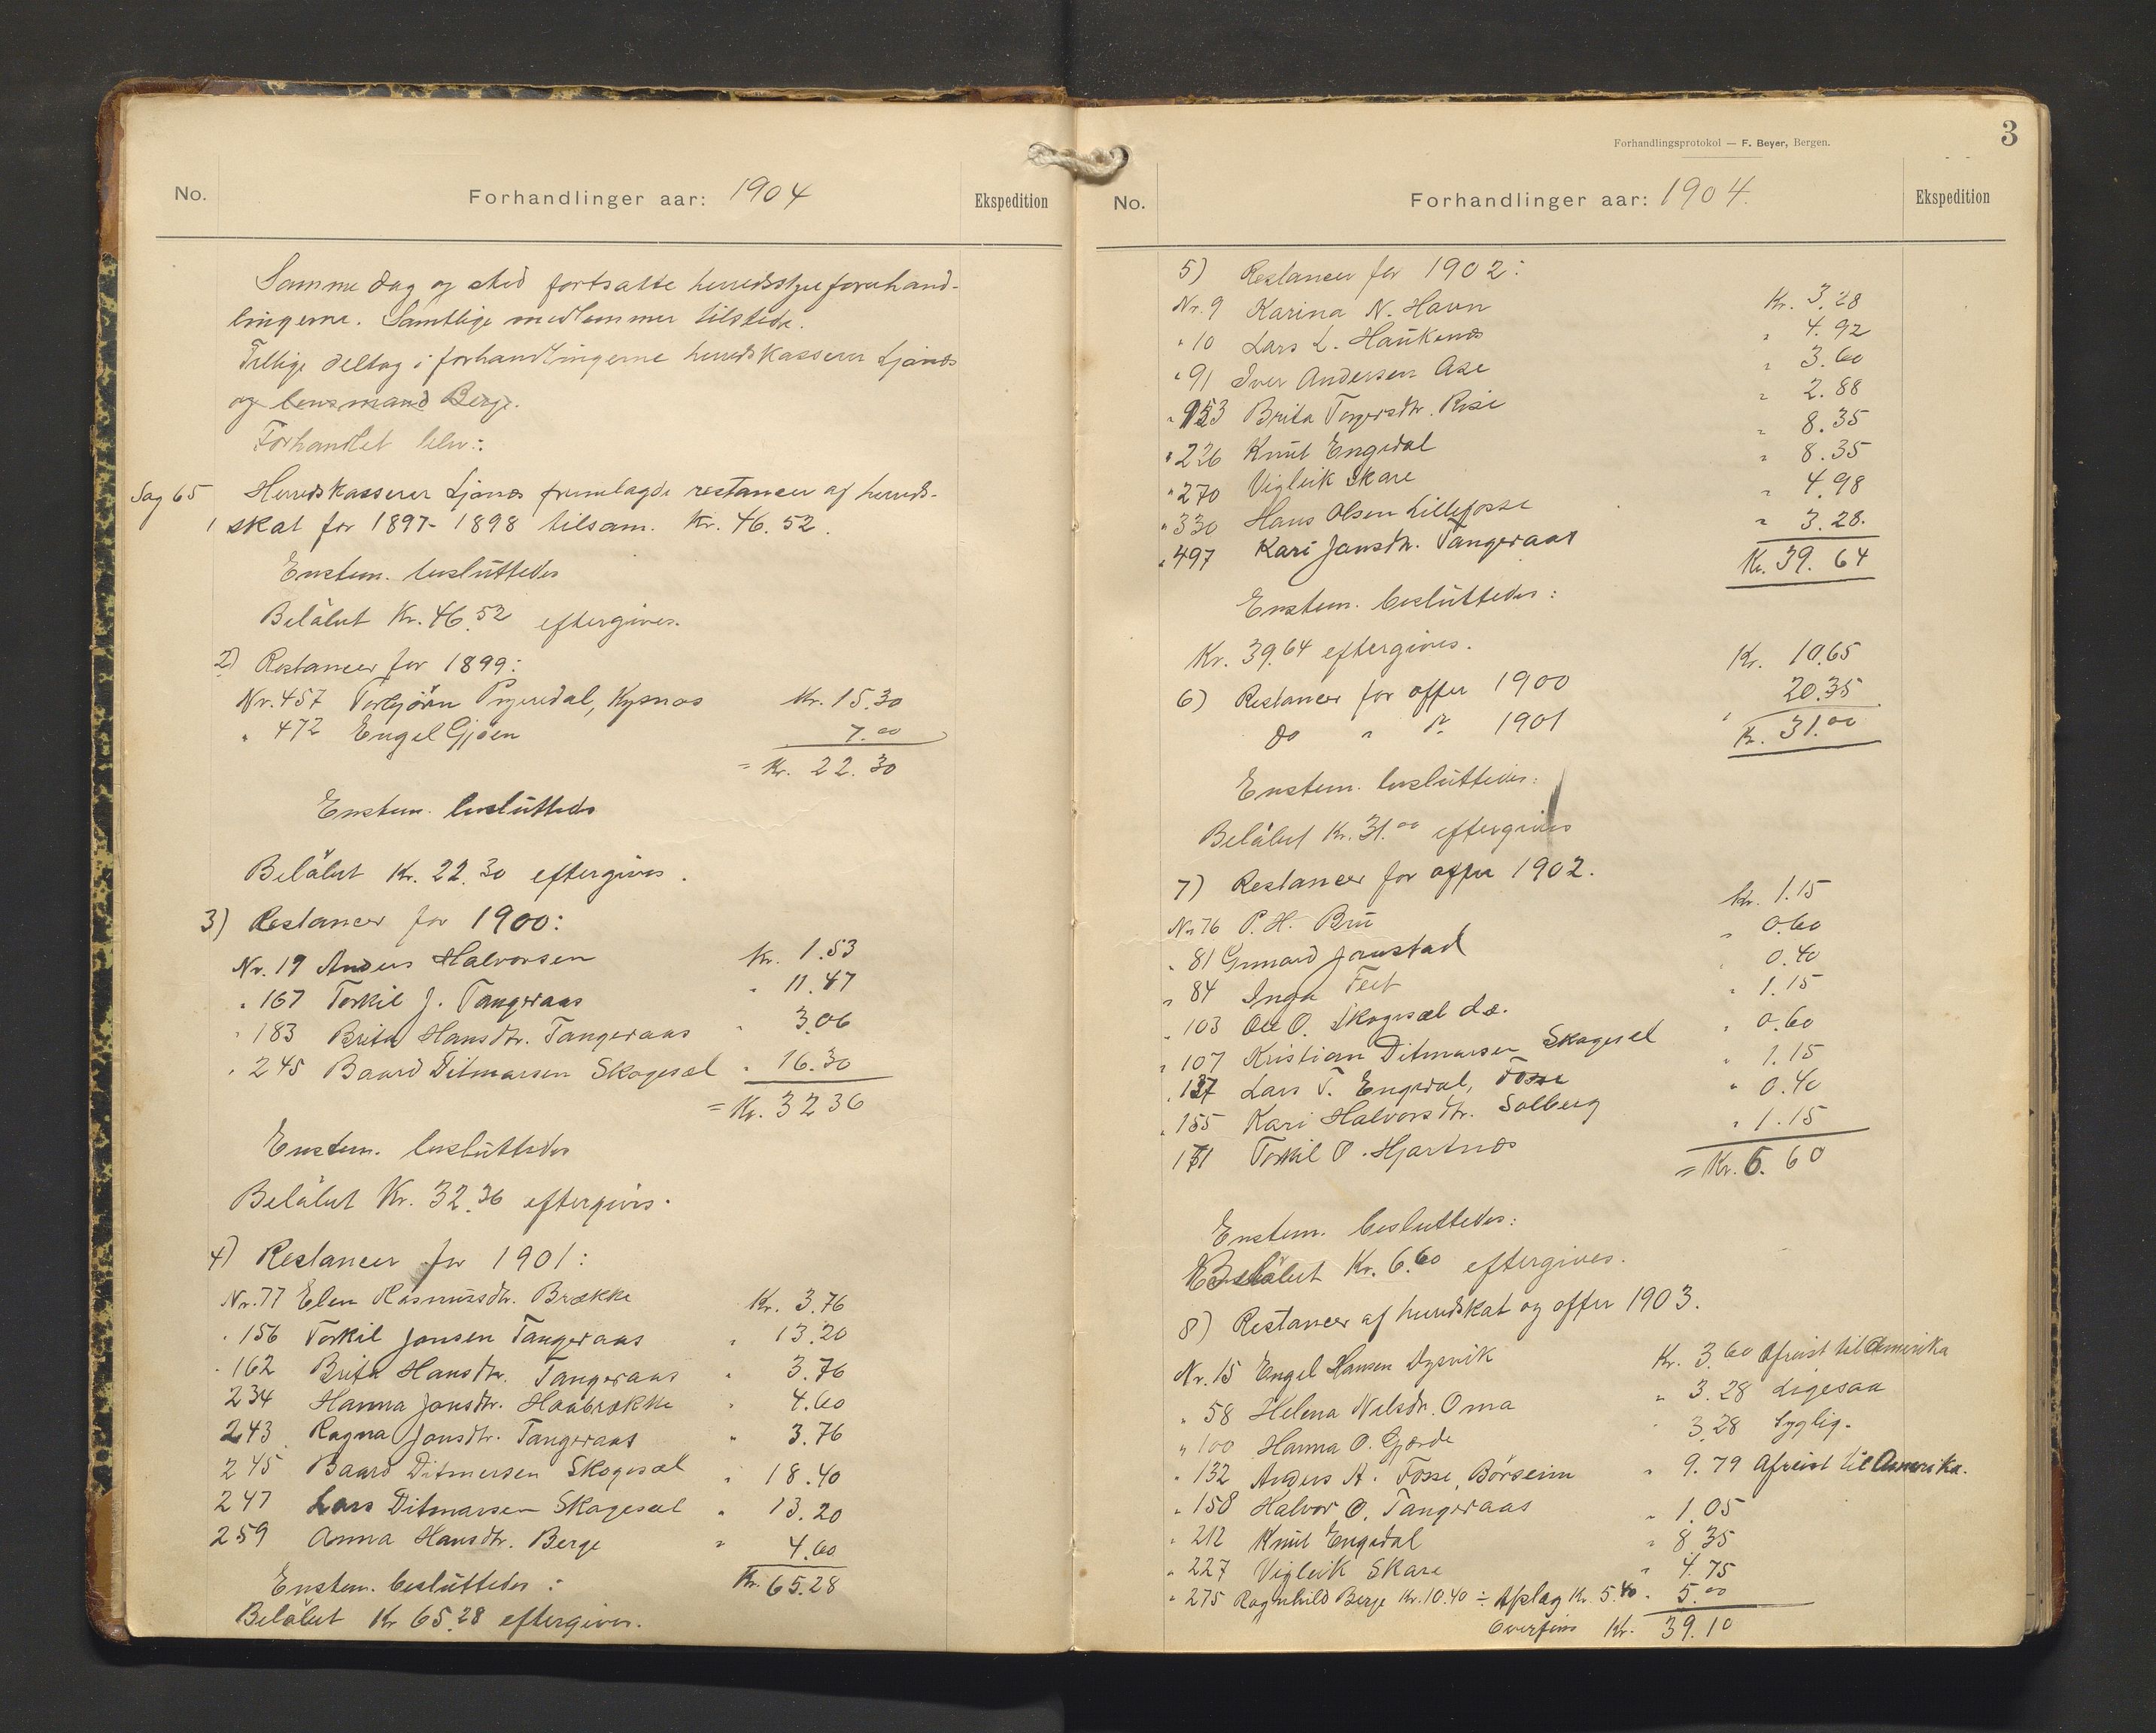 No.
Forhandlinger aar: 1904
Ekspedition
Samme dag og sted fortsatte herredsstyreforhand-
lingerne. Samtlige medlemmer tilstede.
Tillige deltog i forhandlingerne herredskasserer Ljones
og lensmand Berge.
Forhandlet blev:
Sag 65 Herredskasserer Ljones fremlagde restancer af herreds-
1 skat for 1897-1898 tilsam. Kr. 46.52.
Enstem. besluttedes
Beløbet Kr. 46.52 eftergives.
2) Restancer for 1899:
Nr. 457 Torbjörn Kysnes Kr. 15.30
" 472 Engel Gjöen 7.00
= Kr. 22.30
Enstem. besluttedes
Beløbet Kr. 22.30 eftergives.
3) Restancer for 1900:
Nr. 19 Anders Halvorsen Kr. 1.53
" 167 Torkil J. Tangeraas " 11.47
" 183 Brita Hansdtr. Tangeraas " 3.06
" 245 Baard Ditmarsen Skogesæl " 16.30
= Kr. 32 36
Enstem. besluttedes
Beløbet Kr. 32.36 eftergives.
4) Restancer for 1901:
Nr. 77 Elen Rasmusdtr. Brække Kr. 3.76
" 156 Torkil Jonsen Tangeraas " 13.20
" 162 Brita Hansdtr. Tangeraas " 3.76
234 Hanna Jonsdtr. Haabrække " 4.60
243 Ragna Jonsdtr. Tangeraas " 3.76
245 Baard Ditmersen Skogesæl " 18.40
247 Lars Ditmarsen Skogesæl " 13.20
259 Anna Hansdtr. Berge " 4.60
Kr. 65.28
Enstem. besluttedes:
Beløbet Kr 65.28 eftergives.
Forhandlingsprotokol — F. Beyer, Bergen.
3
No.
Forhandlinger aar: 1904.
Ekspedition
5) Restancer for 1902:
Nr. 9 Karina N. Havn Kr. 3.28
" 10 Lars L. Haukenæs " 4.92
" 91 Iver Andersen Axe " 3.60
" 153 Brita Torgersdtr. Rise " 2.88
" 226 Knut Engedal " 8.35
" 270 Vigleik Skare " 8.35
" 330 Hans Olsen Lillefosse " 4.98
" 497 Kari Jonsdtr. Tangeraas " 3.28.
Kr. 39.64
Enstem. besluttedes:
Kr. 39.64 eftergives.
6) Restancer for offer 1900 Kr. 10.65
do " " 1901 " 20.35
Kr. 31.00
Enstem. besluttedes:
Beløbet Kr. 31.00 eftergives
7) Restancer for offer 1902.
Nr 76 P. H. Bru Kr. 1.15
" 81 Gunnard Jonstad " 0.60
" 84 Inga Feet " 0.40
" 103 Ole O. Skogesæl d.æ. " 1.15
" 107 Kristian Ditmarsen Skogesel " 0.60
" 137 Lars T. Engedal, Fosse " 1.15
" 155 Kari Halvorsdtr. Solberg " 0.40
171 Torkil O. Hjartnes " 1.15
= Kr. 6.60
Enstem. besluttedes:
Beløbet Kr. 6.60 eftergives.
8) Restancer af herredskat og offer 1903.
Nr. 15 Engel Hansen Dysvik Kr. 3.60 Afreist til Amerika
" 58 Helena Nilsdr. Oma " 3.28 Ligesaa
" 100 Hanna O. Gjerde " 3.28 Syglig.
" 132 Anders A. Fosse, Börseim " 9.79 Afreist til Amerika.
" 158 Halvor O. Tangeraas " 1.05
" 212 Knut Engedal " 8.35
" 227 Vigleik Skare " 4.75
" 275 Ragnhild Berge Kr. 10.40 ÷ Afslag Kr. 5.40 " 5.00
Overføres Kr. 39.10